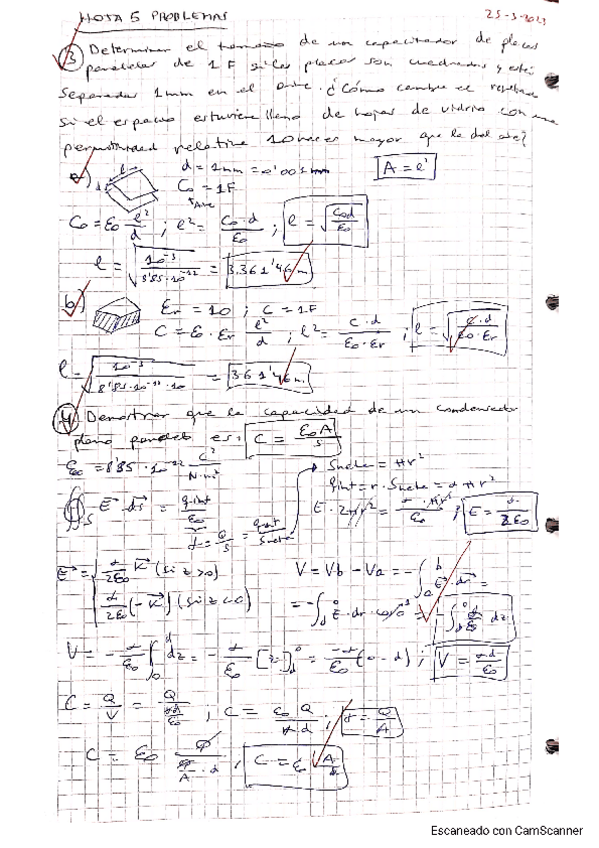 HOJA 5 PROBLEMAS
25-3-2021
3) Determinar el tamaño de un capacitador de placas
paralelas de 1 F si las placas son cuadradas y están
separadas 1mm en el aire. ¿Cómo cambia el resultado
si el espacio estuviera lleno de hojas de vidrio con una
permitividad relativa 10 veces mayor que la del aire?
a) d = 1mm = 0'001 mm
A = l²
C₀ = 1F
C₀ = ε₀ l²/d ; l² = C₀·d/ε₀ ; l = √(C₀d/ε₀)
l = √(10⁻³/8'85·10⁻¹²) = 3.361'46 m
b) εr = 10 ; C = 1F
C = ε₀·εr l²/d ; l² = C·d/ε₀·εr ; l = √(C·d/ε₀·εr)
l = √(10⁻³/8'85·10⁻¹²·10) = 3361'46 m.
4) Demostrar que la capacidad de un condensador
plano paralelo es: C = ε₀A/s
ε₀ = 8'85·10⁻¹² C²/N·m²
= πr²
∯s E·ds = q int/ε₀
E =
σ/2ε₀ K (si z>0)
σ/2ε₀ (-K) (si z<0)
V = Vb - Va = -∫ₐᵇ E·dr =
V = -σ/ε₀ ∫ dz = -σ/ε₀ [z] = -σ/ε₀ (0-d) ; V = σd/ε₀
C = Q/V = Q/(σd/ε₀) ; C = ε₀Q/σ·d ; σ = Q/A
C = ε₀ Q/(Q/A·d) ;
Escaneado con CamScanner